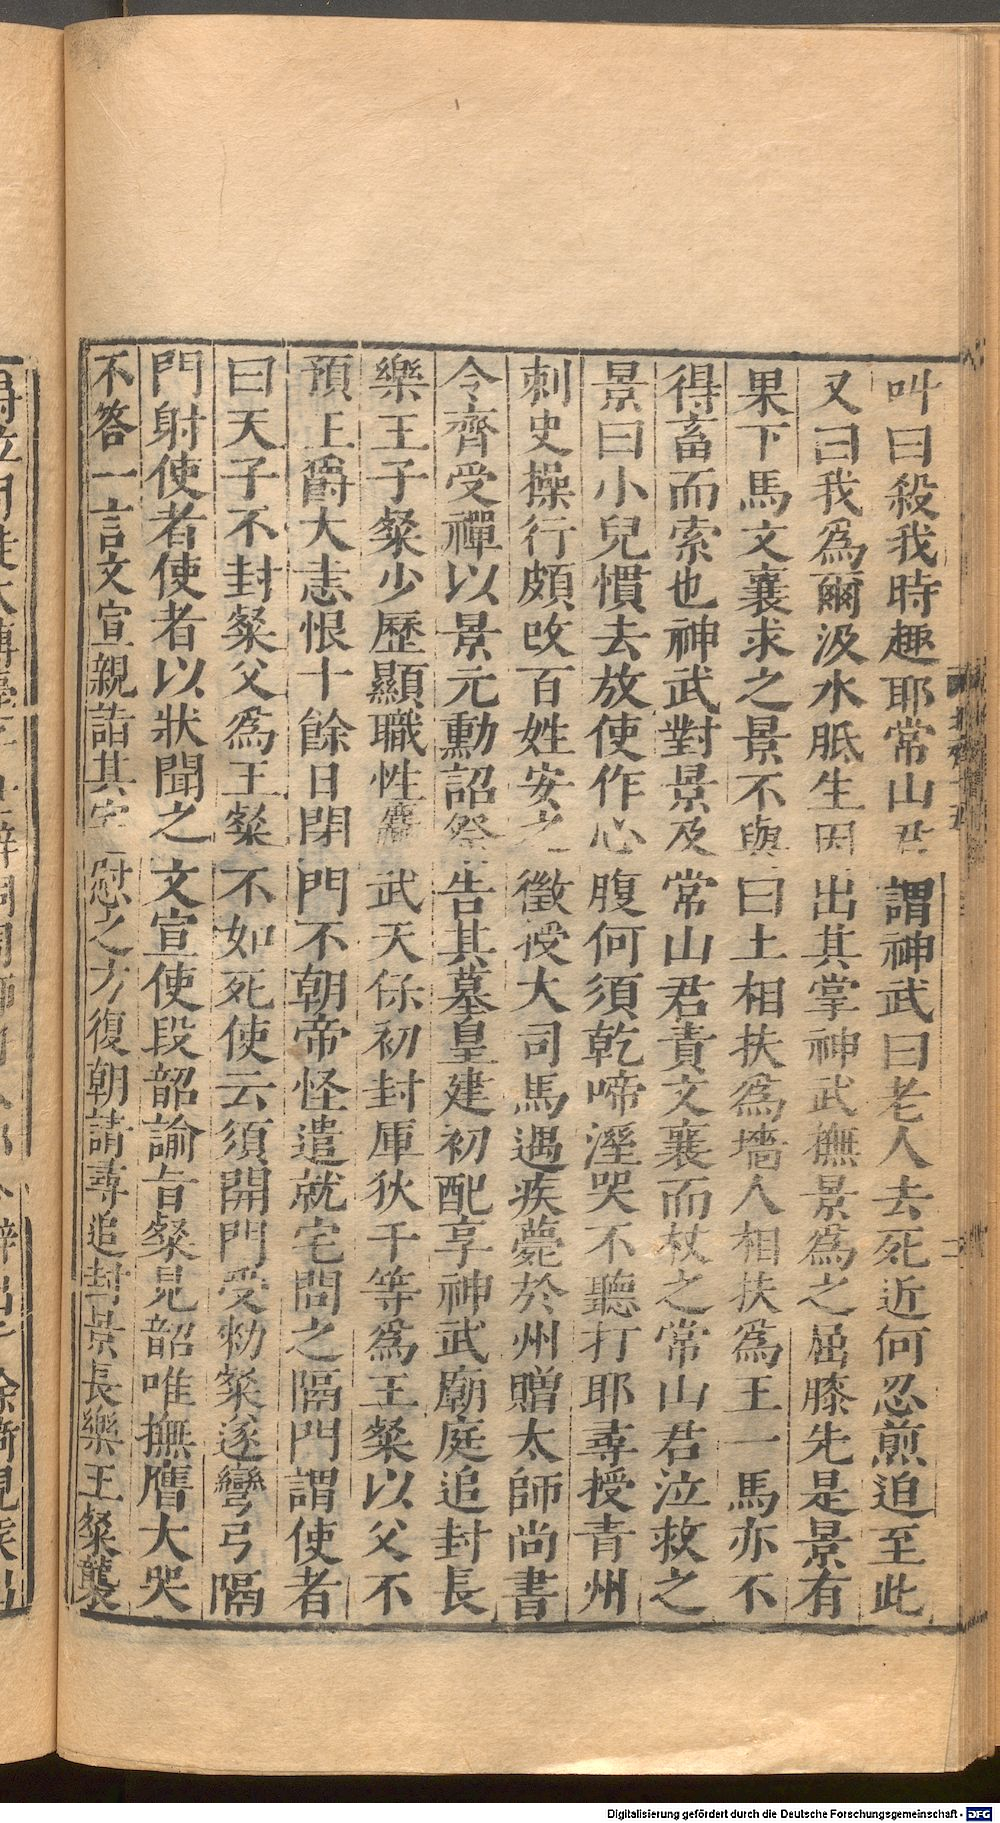 叫曰殺我時趣耶常山君謂神武曰老人去死近何忍煎迫至此
又曰我為爾汲水胝生因出其掌神武撫景為之屈膝先是景有
果下馬文襄求之景不與曰土相扶為墻人相扶為王一馬亦不
得畜而索也神武對景及常山君責文襄而杖之常山君泣救之
景曰小兒慣去放使作心腹何須乾啼溼哭不聽打耶尋授青州
刺史操行頗改百姓安之徵授大司馬遇疾薨於州贈太師尚書
令齊受禪以景元勳詔祭告其墓皇建初配享神武廟庭追封長
樂王子粲少歷顯職性麤武天保初封厙狄干等為王粲以父不
預王爵大恚恨十餘日閉門不朝帝怪遣就宅問之隔門謂使者
曰天子不封粲父為王粲不如死使云須開門受勑粲遂彎弓隔
門射使者使者以狀聞之文宣使段韶諭旨粲見韶唯撫膺大哭
不答一言文宣親詣其宅慰之方復朝請尋追封景長樂王粲襲
Digitalisierung gefördert durch die Deutsche Forschungsgemeinschaft - DFG